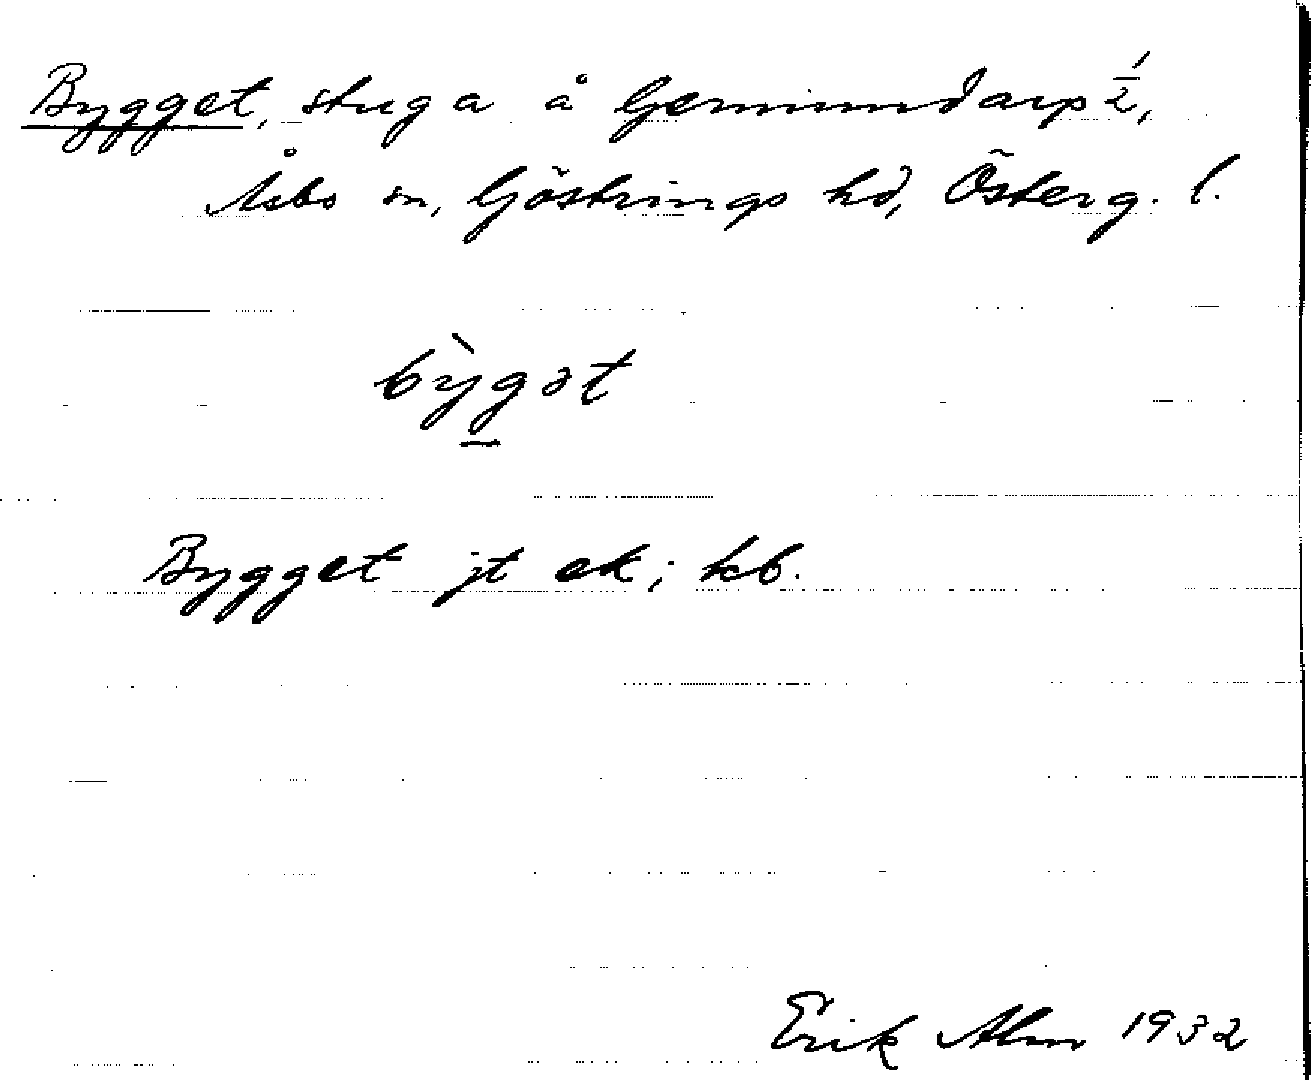 Bygget, stuga å Gemmundarp 1/2,
Åsbo sn, Göstrings hd, Österg. l.
bỳg̲ət
Bygget jt ek; kb.
Erik Alm 1932